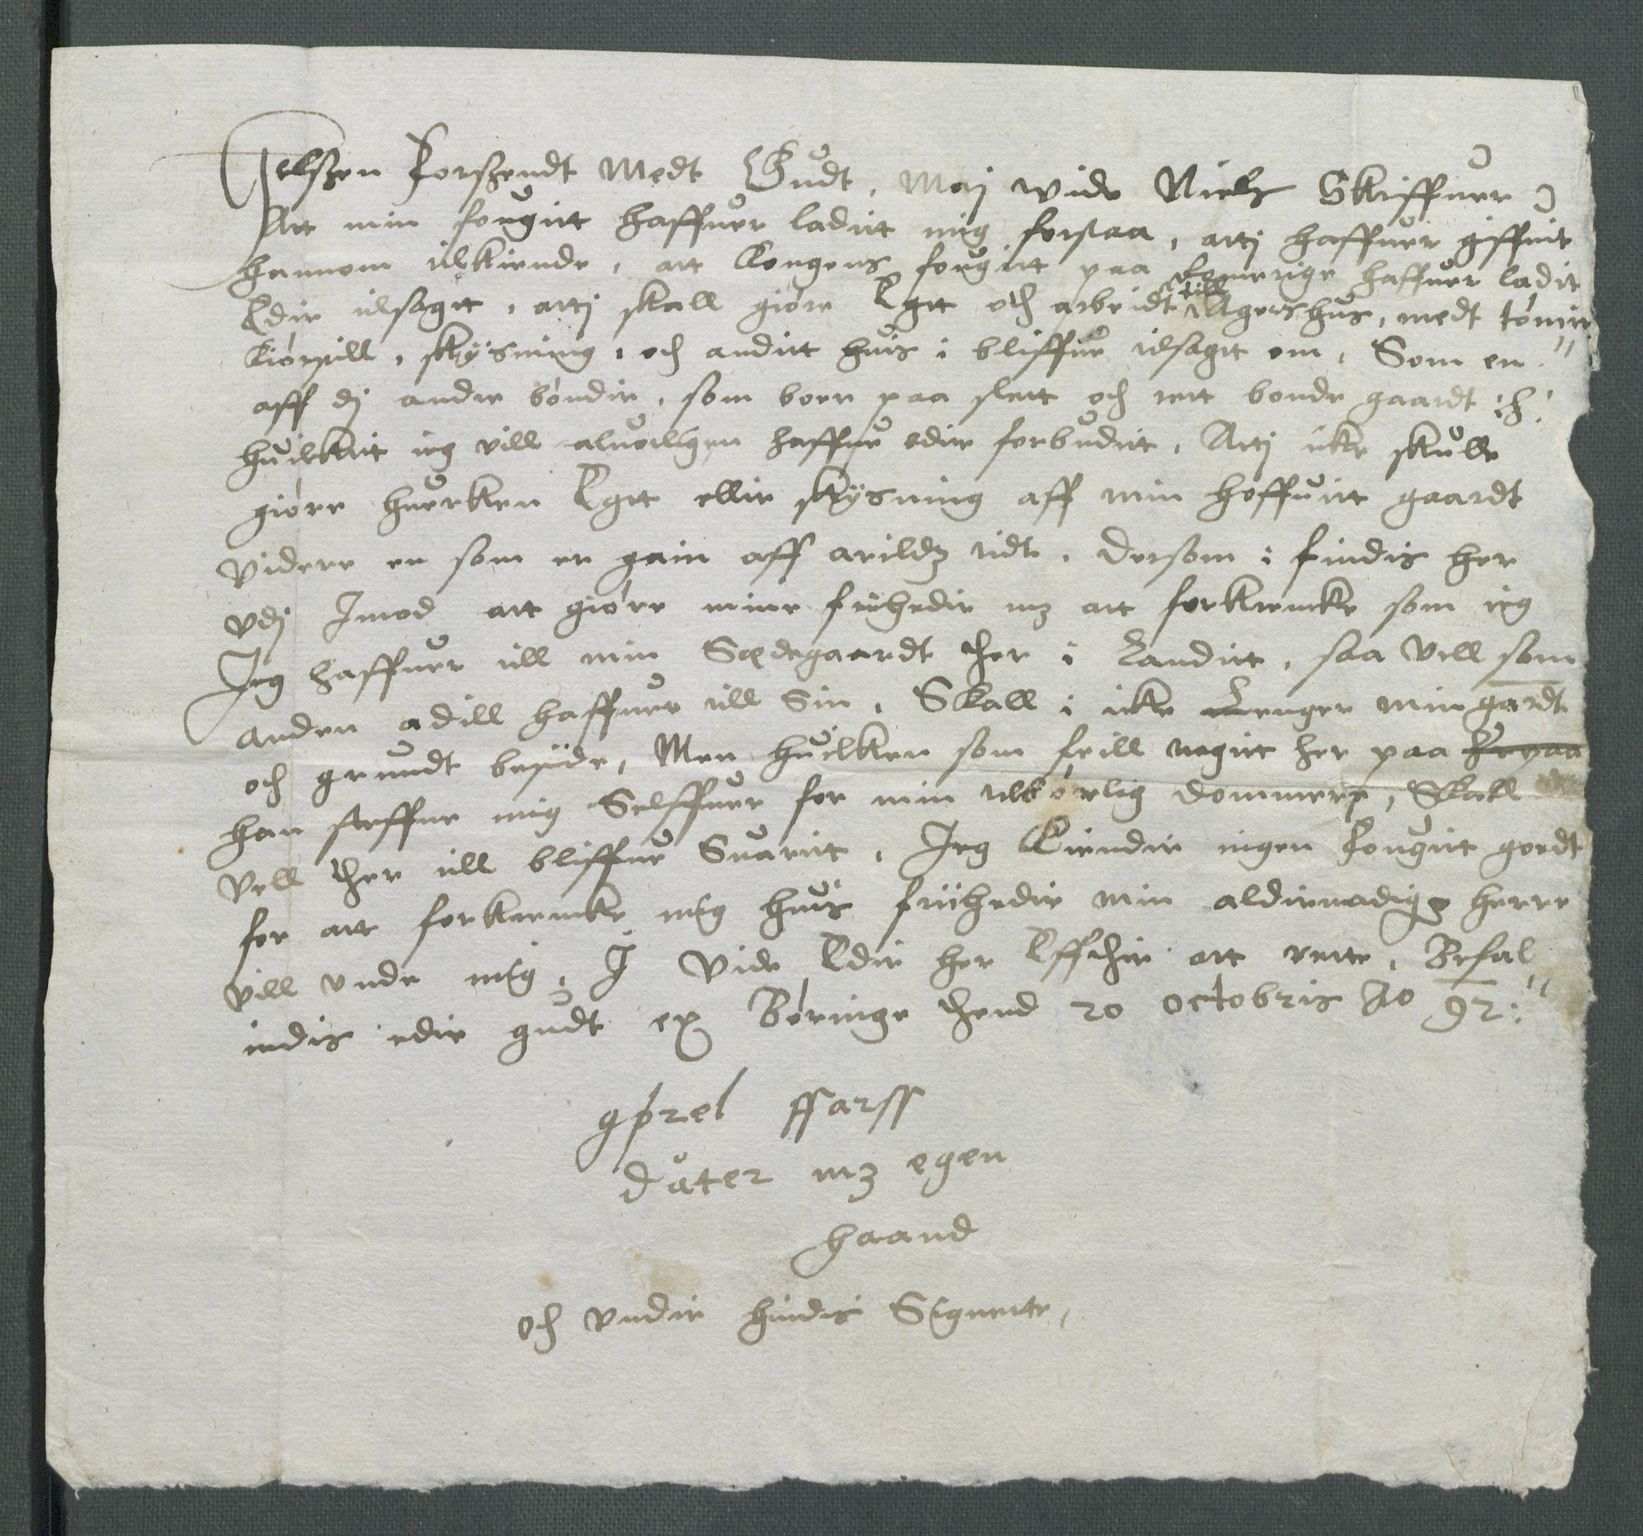 Helszen Forszendt Medt Gudt, Maj wide Niels Skriffuer
Att min fougitt haffuer ladit mig forstaa, atj haffuer giffuit
hannom tilkiende, att Kongens fougitt paa Romerige haffuer ladit
Edir tilsagtt, atj skall giøre Egtt och arbeidt till Agershus, medt tømir
kiørsill, skÿsning, och anditt huis i bliffue tilsagtt om, Som en
aff dj andre bøndir, som boer paa slett och rett bonde gaardt
huilckit ieg vill aluorligen haffue edir forbudit, Atj icke skulle
giøre huercken Egtt ellir skÿsning aff min hoffuitt gaardt
videre en som er gain aff arildz tidt, dersom i findis her
vdj Imod att giøre mine friihedir mz att forkrencke som ieg
Jeg haffuer till min Sædegaardt ther i Landitt, saa vell som
anden adill haffuer till Sin, Skall i icke Lenger min gardt
och grundt besiide, Men huilcken som feill nogit her paa
han steffne mig Selffuer for min tilbørlig dommere, Skall
vell ther till bliffue Suarit, Jeg kiendir ingen fougitt godt
for att forkrencke mig huis friihedir min aldirnadigste herre
vill vnde mig, I vide Edir her Effthir att rette, Befal
indis edir gudt ex Børinge thend 20 octobris Ao 92
gørel ffarss
dater mz egen
haand
och vndir hindis Signette,